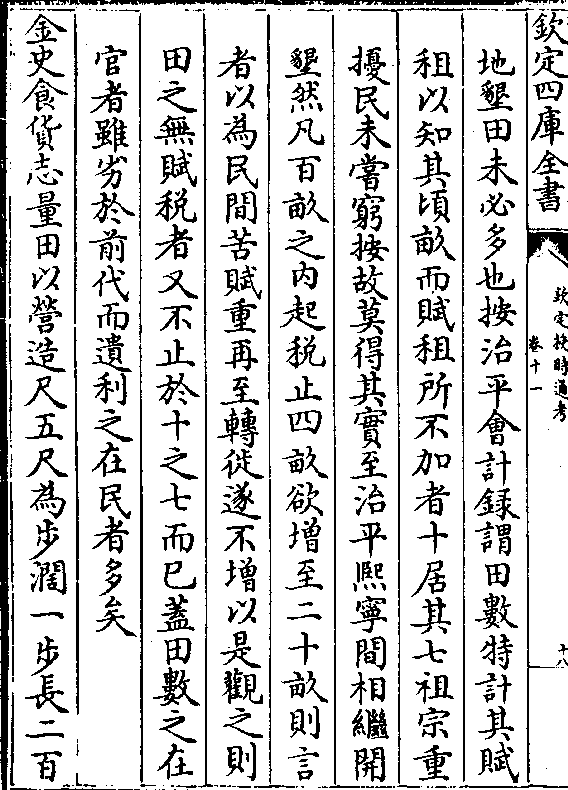 欽定四庫全書
欽定授時通考
卷十一
十八
地墾田未必多也按治平會計録謂田數特計其賦
租以知其頃畝而賦租所不加者十居其七祖宗重
擾民未嘗窮按故莫得其實至治平熙寧間相繼開
墾然凡百畝之內起税止四畝欲增至二十畝則言
者以為民間苦賦重再至轉徙遂不增以是觀之則
田之無賦税者又不止於十之七而已蓋田數之在
官者雖劣於前代而遺利之在民者多矣
金史食貨志量田以營造尺五尺為步濶一步長二百